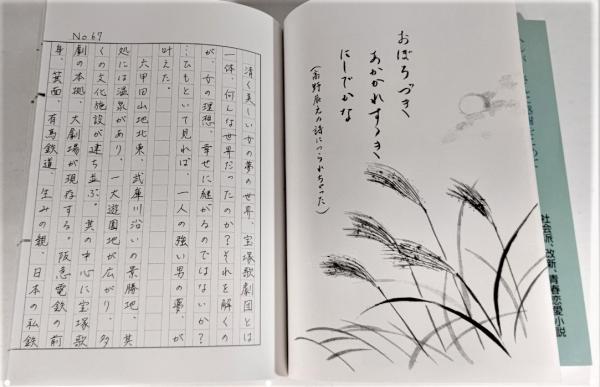 社会派、改新、青春恋愛小説
おぼろづき
あかかれすゝき
にしでかな
(高野辰之の詩につられちゃった)
No.67
清く美しい女の夢の世界、宝塚歌劇団とは
一体、何んな世界だったのか?それを解くの
が、女の理想、幸せに継がるのではないか?
…ひもといて見れば、一人の強い男の夢、が
叶えた。
六甲田山地北東、武庫川沿いの景勝地、其
処には温泉があり、一大遊園地が広がり、多
くの文化施設が建ち並ぶ。其の中心に宝塚歌
劇の本拠、大劇場が現存する。阪急電鉄の前
身、箕面、有馬鉄道、生みの親、日本の私鉄